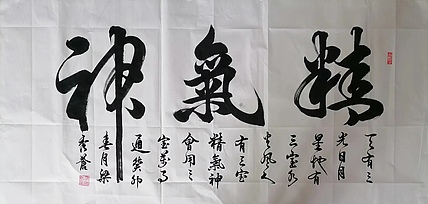 精氣神
天有三
光日月
星地有
三宝水
火风人
有三宝
精氣神
會用三
宝萬事
通癸卯
春月梁
秀